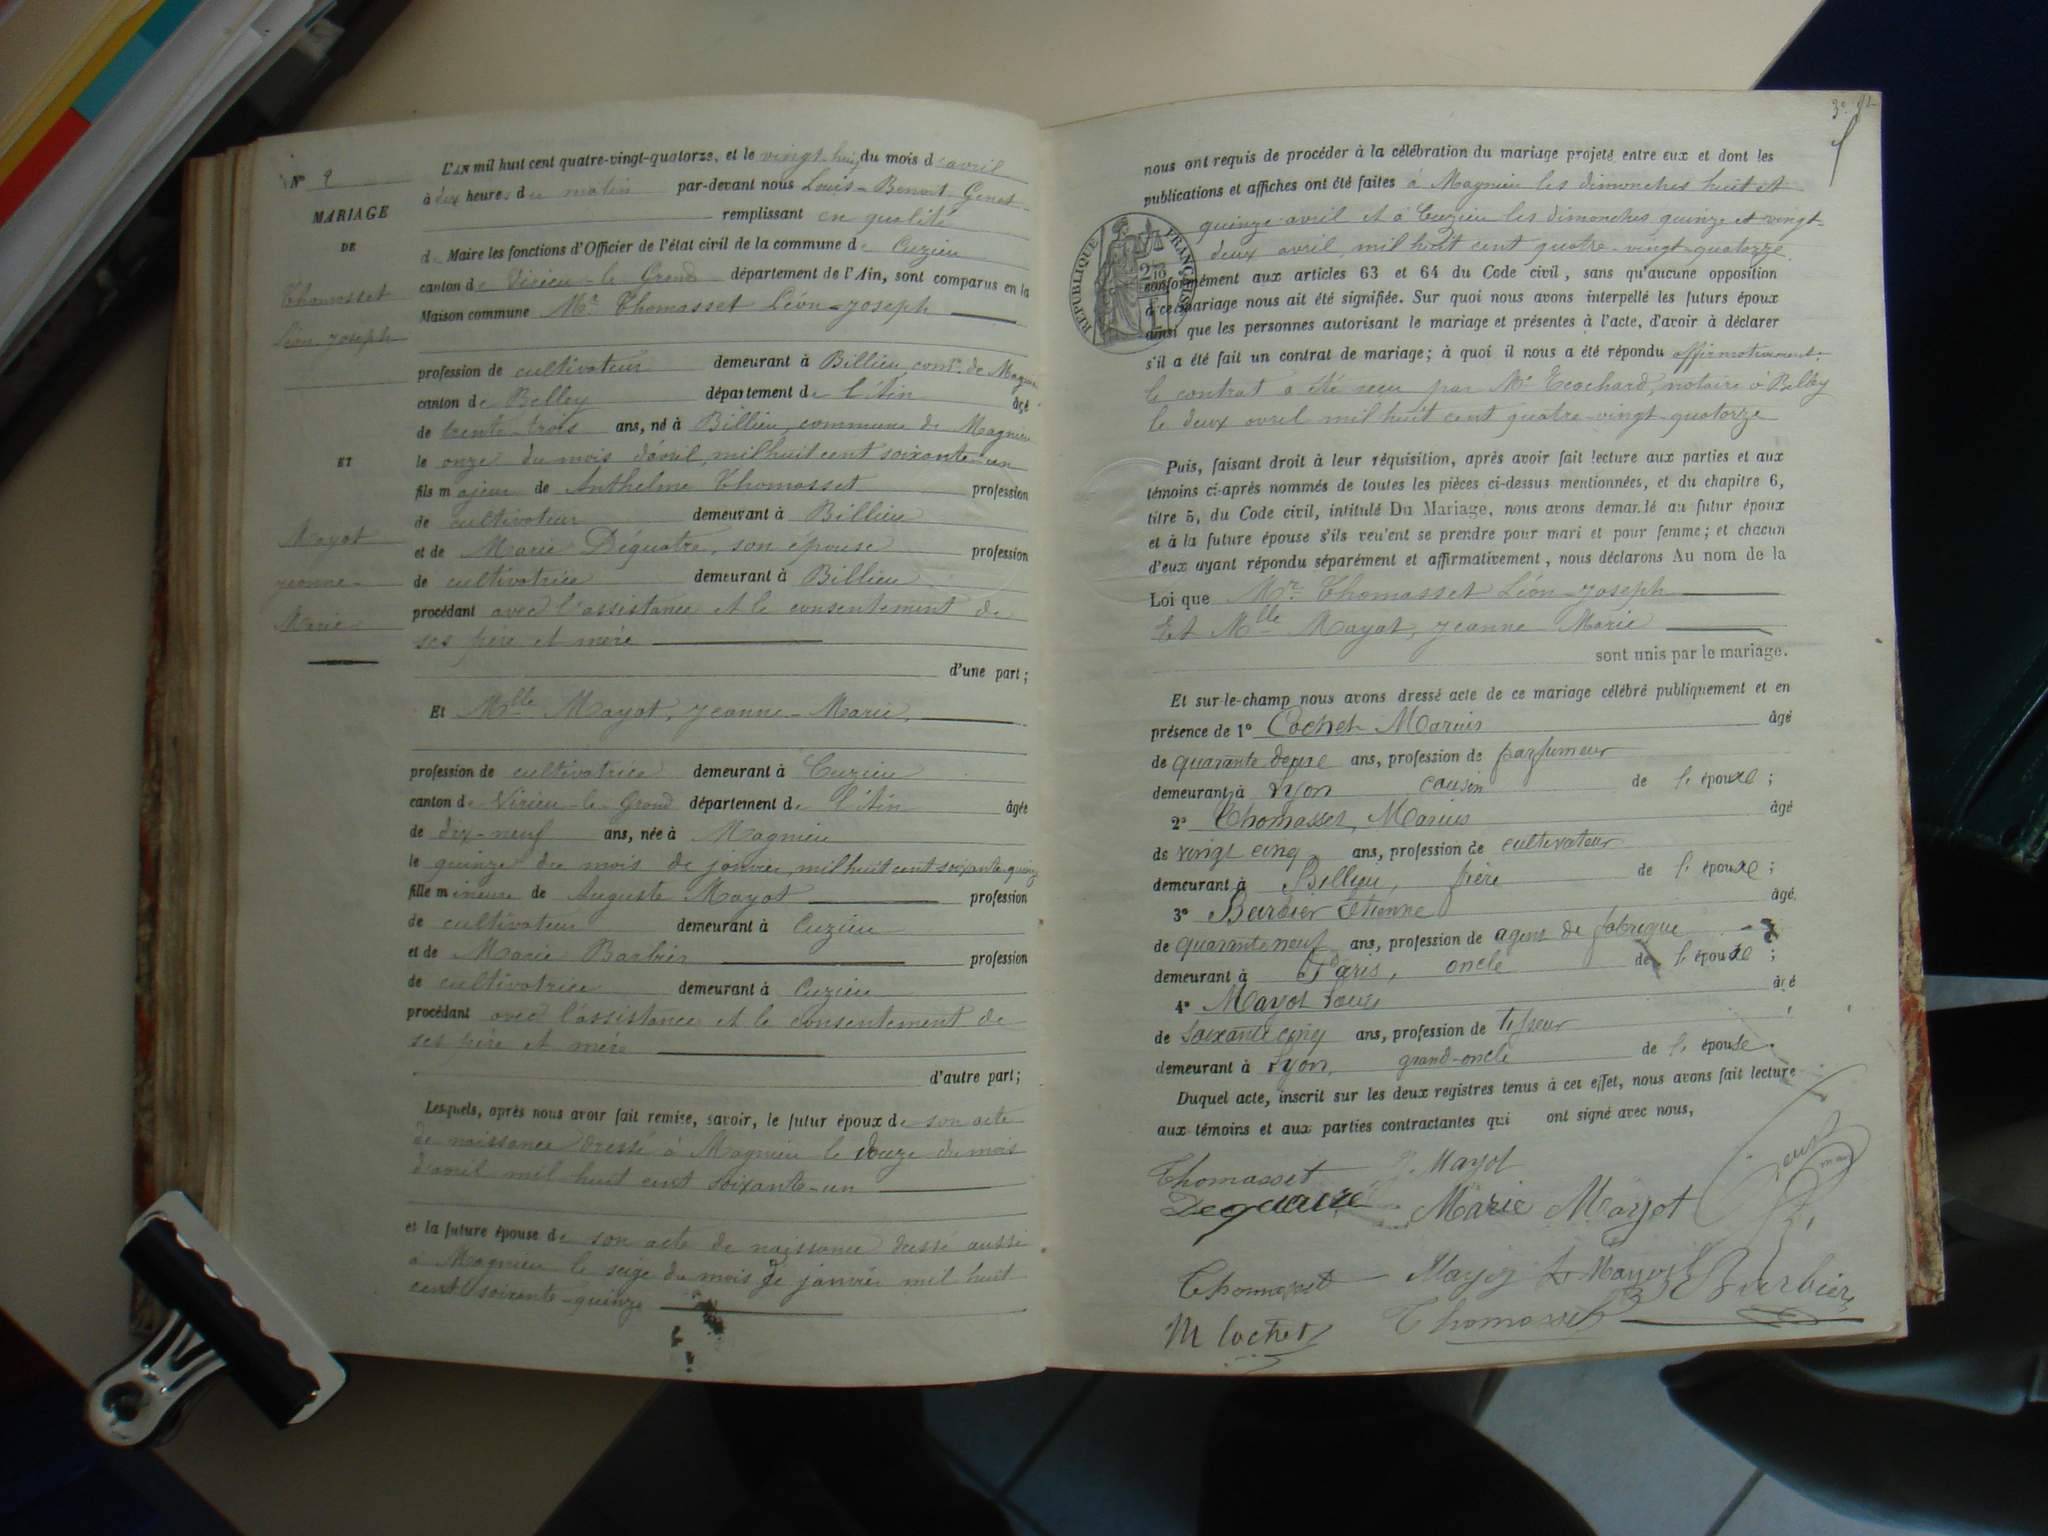 N° 4
MARIAGE
DE
Thomasset
Léon-Joseph
ET
Mayot
Jeanne-
Marie
L'AN mil huit cent quatre-vingt-quatorze, et le vingt huit du mois d'avril
à dix heures du matin par-devant nous Louis-Benoit Genet
remplissant en qualité
de Maire les fonctions d'Officier de l'état civil de la commune de Cuzieu
canton de Virieu-le-Grand département de l'Ain, sont comparus en la
Maison commune Mr Thomasset Léon-Joseph
profession de cultivateur demeurant à Billieu, comne de Magnieu
canton de Belley département de l'Ain âgé
de trente-trois ans, né à Billieu, commune de Magnieu
le onze du mois d'avril, mil huit cent soixante-un
fils majeur de Anthelme Thomasset profession
de cultivateur demeurant à Billieu
et de Marie Déquatre, son épouse profession
de cultivatrice demeurant à Billieu
procédant avec l'assistance et le consentement de
ses père et mère
d'une part;
Et Mlle Mayot, Jeanne-Marie,
profession de cultivatrice demeurant à Cuzieu
canton de Virieu-le-Grand département de l'Ain âgée
de dix-neuf ans, née à Magnieu
le quinze du mois de janvier, mil huit cent soixante-quinze
fille mineure de Auguste Mayot profession
de cultivateur demeurant à Cuzieu
et de Marie Barbier profession
de cultivatrice demeurant à Cuzieu
procédant avec l'assistance et le consentement de
ses père et mère
d'autre part;
Lesquels, après nous avoir fait remise, savoir, le futur époux de son acte
de naissance dressé à Magnieu le douze du mois
d'avril mil huit cent soixante-un
et la future épouse de son acte de naissance dressé aussi
à Magnieu le seize du mois de janvier mil huit
cent soixante-quinze
nous ont requis de procéder à la célébration du mariage projeté entre eux et dont les
publications et affiches ont été faites à Magnieu les dimanches huit et
quinze avril et à Cuzieu les dimanches quinze et vingt-
deux avril, mil huit cent quatre-vingt-quatorze,
RÉPUBLIQUE FRANÇAISE
conformément aux articles 63 et 64 du Code civil, sans qu'aucune opposition
à ce mariage nous ait été signifiée. Sur quoi nous avons interpellé les futurs époux
ainsi que les personnes autorisant le mariage et présentes à l'acte, d'avoir à déclarer
s'il a été fait un contrat de mariage; à quoi il nous a été répondu affirmativement.
le contrat a été reçu par Me Ecochard, notaire à Belley
le deux avril mil huit cent quatre-vingt-quatorze
Puis, faisant droit à leur réquisition, après avoir fait lecture aux parties et aux
témoins ci-après nommés de toutes les pièces ci-dessus mentionnées, et du chapitre 6,
titre 5, du Code civil, intitulé Du Mariage, nous avons demandé au futur époux
et à la future épouse s'ils veulent se prendre pour mari et pour femme; et chacun
d'eux ayant répondu séparément et affirmativement, nous déclarons Au nom de la
Loi que Mr Thomasset Léon-Joseph
Et Mlle Mayot, Jeanne Marie
sont unis par le mariage.
Et sur-le-champ nous avons dressé acte de ce mariage célébré publiquement et en
présence de 1° Cochet Marius âgé
de quarante deux ans, profession de parfumeur
demeurant à Lyon cousin de l'épouse;
2° Thomasset, Marius âgé
de vingt cinq ans, profession de cultivateur
demeurant à Billieu, frère de l'époux;
3° Barbier Etienne âgé
de quarante neuf ans, profession de agent de fabrique
demeurant à Paris, oncle de l'épouse;
4° Mayot Louis âgé
de soixante cinq ans, profession de tisseur
demeurant à Lyon, grand-oncle de l'épouse.
Duquel acte, inscrit sur les deux registres tenus à cet effet, nous avons fait lecture
aux témoins et aux parties contractantes qui ont signé avec nous,
Thomasset J. Mayot
Dequatre Marie Mayot
Genet
maire
Thomasset Mayot
Barbier
M Cochet Thomasset